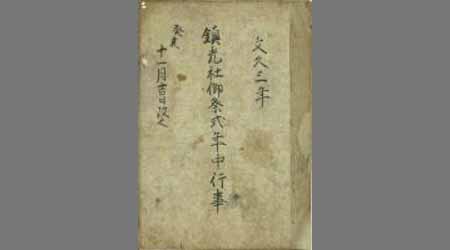 文久三年
鎮光社御祭式年中行事
癸亥
十一月吉日改之